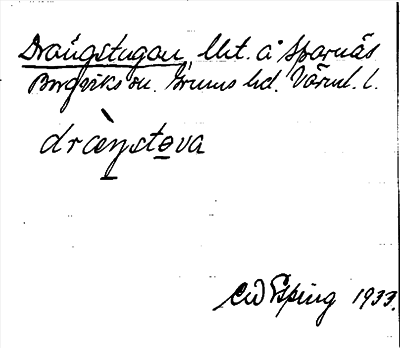 Drängstugan, lht. å Sparnäs
Borgviks sn. Grums hd. Värml. l.
dræ̀ŋstəva
CW Esping 1933.